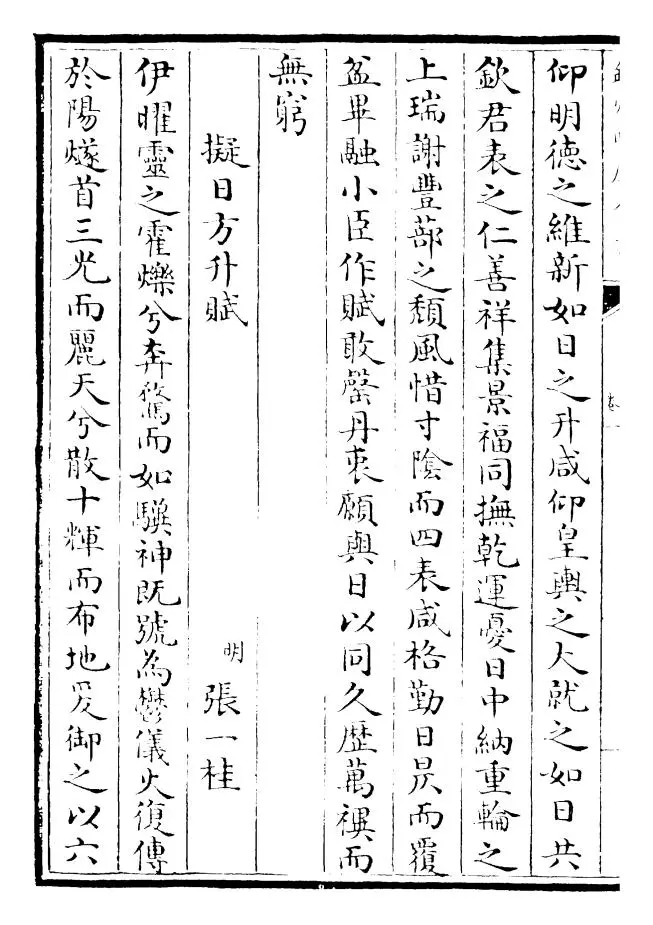 仰明德之維新如日之升咸仰皇輿之大就之如日共
欽君表之仁善祥集景福同撫乾運憂日中納重輪之
上瑞謝豐蔀之頽風惜寸陰而四表咸格勤日昃而覆
盆畢融小臣作賦敢罄丹衷願與日以同久歴萬禩而
無窮
擬日方升賦
明張一桂
伊曜靈之霍爍兮奔騖而如驥神既號為鬱儀火復傳
於陽燧首三光而麗天兮散十輝而布地爰御之以六